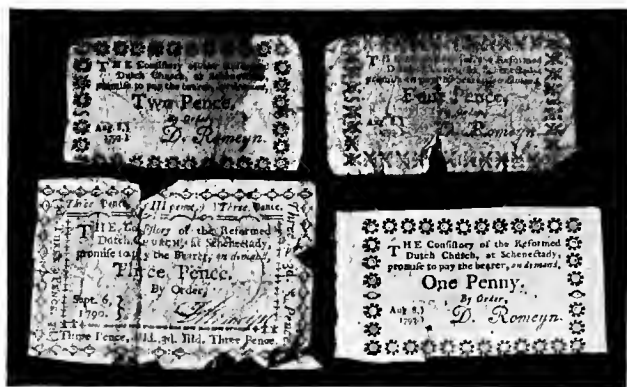 THE Consistory of the Reformed
Dutch Church, at Schenectady
promise to pay the bearer, on demand,
Two Pence.
By Order,
Aug 8,
1792
D. Romeyn.
the Reformed
Dutch
promise to pay the bearer
Four Pence.
By Order,
Aug
1792
D. Romeyn
Three Pence, III pence, 3 Three Pence.
THE Consistory of the Reformed
Dutch CHURCH, at Schenectady
promise to pay the Bearer, on demand
Three Pence.
By Order,
Sept. 6,
1790.
Romeyn
Three Pence, IIId. 3d. IIId. Three Pence.
THE Consistory of the Reformed
Dutch Church, at Schenectady,
promise to pay the bearer, on demand,
One Penny.
By Order,
Aug 8,
1792
D. Romeyn.